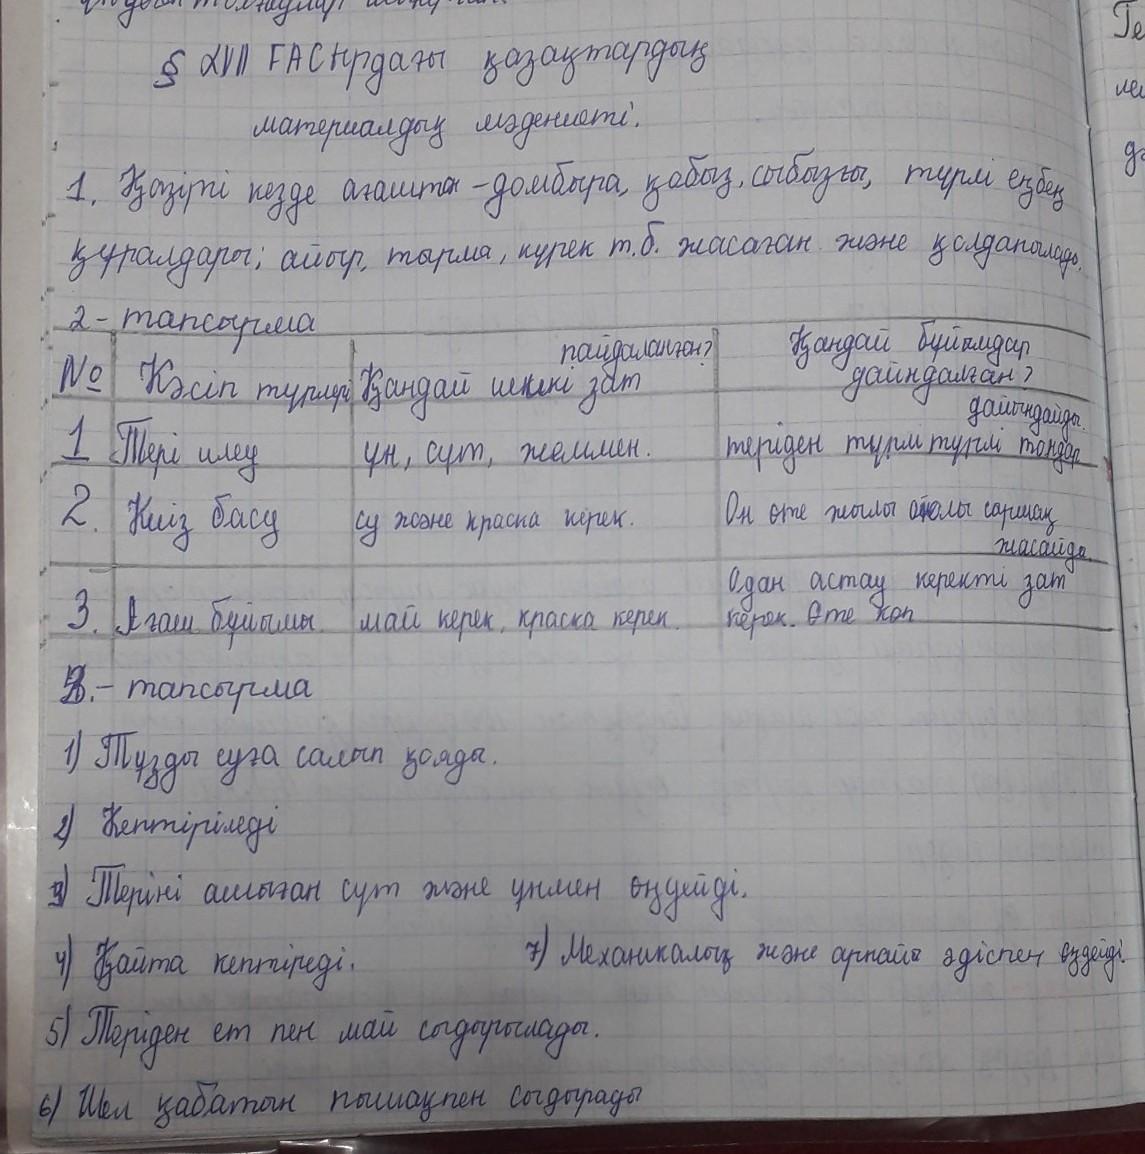 § XVII ҒАСырдағы қазақтардың
материалдық мәдениеті.
1. Қазіргі кезде ағаштан - домбыра, қобыз, сыбызғы, түрлі еңбек
құралдары; айыр, тырма, күрек т.б. жасаған және қолданылады.
2 - тапсырма
№ Кәсіп түрлері Қандай шикі зат пайдаланған? Қандай бұйымдар
дайндалған?
1 Тері илеу ұн, сүт, жеммен. теріден түрлі түрлі тондар дайындайды.
2. Киіз басу су және краска керек. Он өте жылы
жасайды.
3. Ағаш бұйымы май керек, краска керек. Одан астау керекті зат
керек. Өте көп
- тапсырма
1) Тұзды суға салып қояды.
2) Кептіріледі
3) Теріні ашыған сүт және ұнмен өңдейді.
4) Қайта кептіреді. 7) Механикалық және арнайы әдіспен өңдейді.
5) Теріден ет пен май сыдырылады.
6) Шел қабатын пышақпен сыдырады
Ге